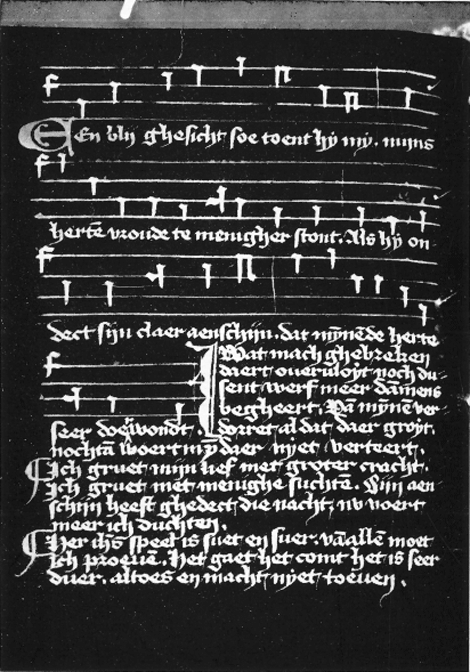 EEn blij ghesicht soe toent hij mij. mijns
herte vroude te menigher stont. Als hij on-
dect sijn claer aenschijn. dat mynēde herte
seer doer wondt.
Wat mach ghebreken
daert oueruloyt noch du-
sent werf meer dā mens
begheert. Dā mynē ver-
dorret al dat daer groyt.
nochtā woert mȳ daer nyet verteert.
Ich gruet mijn lief met groter cracht.
ich gruet met menighe suchtē. Sijn aen
schijn heeft ghedect die nacht. nv voert
meer ich duchten.
Her ihūs speel is suet en suer. vā allē moet
ich proeuē. Het gaet het comt het is seer
duer. altoes en mach't nyet toeuen.